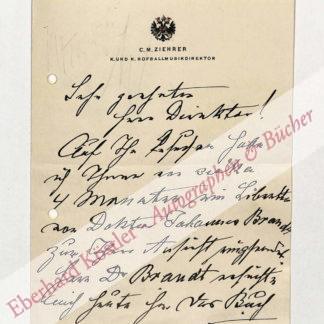 C. M. ZIEHRER
K. UND K. HOFBALLMUSIKDIREKTOR
Sehr geehrter
Herr Direktor!
Auf Ihr Ersuchen hatte
ich Ihnen vor circa
4 Monaten ein Libretto
von Doktor Johannes Brandt
zur Ansicht eingesendet
Herr Dr Brandt ersuchte
mich heute Ihr das Buch
Eberhard Köstler Autographen & Bücher